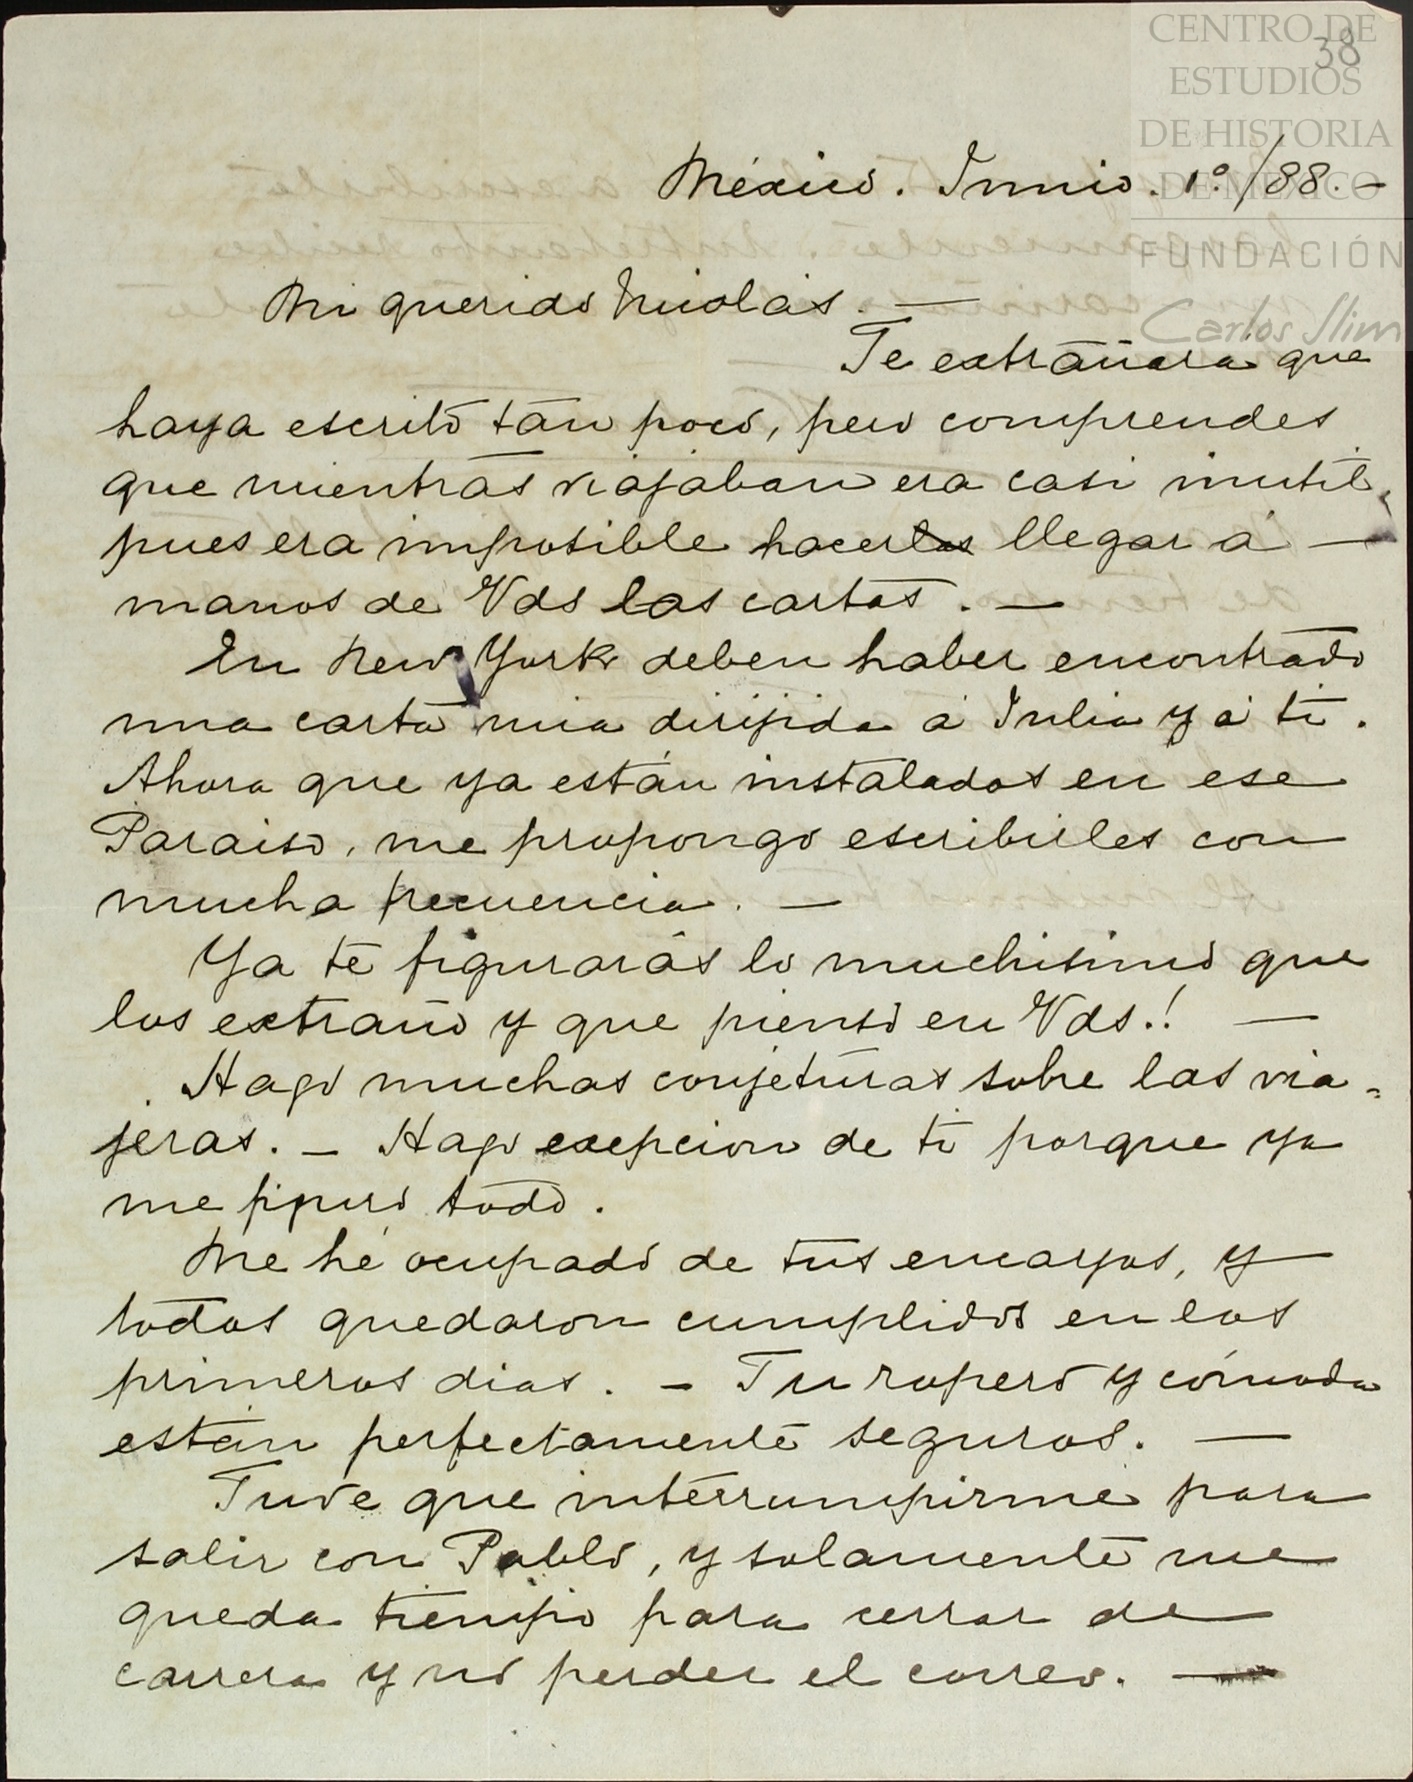 CENTRO DE
ESTUDIOS
DE HISTORIA
DE MÉXICO
FUNDACIÓN
Carlos Slim
38
México. Junio. 1º/88. –
Mi querido Nicolás. —
Te extrañará que
haya escrito tan poco, pero comprendes
que mientras viajaban era casi inutil,
pues era imposible hacerlas llegar á —
manos de Vds las cartas. —
En New York deben haber encontrado
una carta mia dirijida á Julia y á ti.
Ahora que ya están instalados en ese
Paraiso, me propongo escribirles con
mucha frecuencia. —
Ya te figurarás lo muchisimo que
los extraño y que pienso en Vds.! —
Hago muchas conjeturas sobre las via=
jeras. – Hago excepcion de ti porque ya
me figuro todo.
Me hé ocupado de tus encargos, y
todos quedaron cumplidos en los
primeros dias. – Tu ropero y cómoda
están perfectamente seguros. —
Tuve que interrumpirme para
salir con Pablo, y solamente me
queda tiempo para cerrar de
carrera y no perder el correo. —